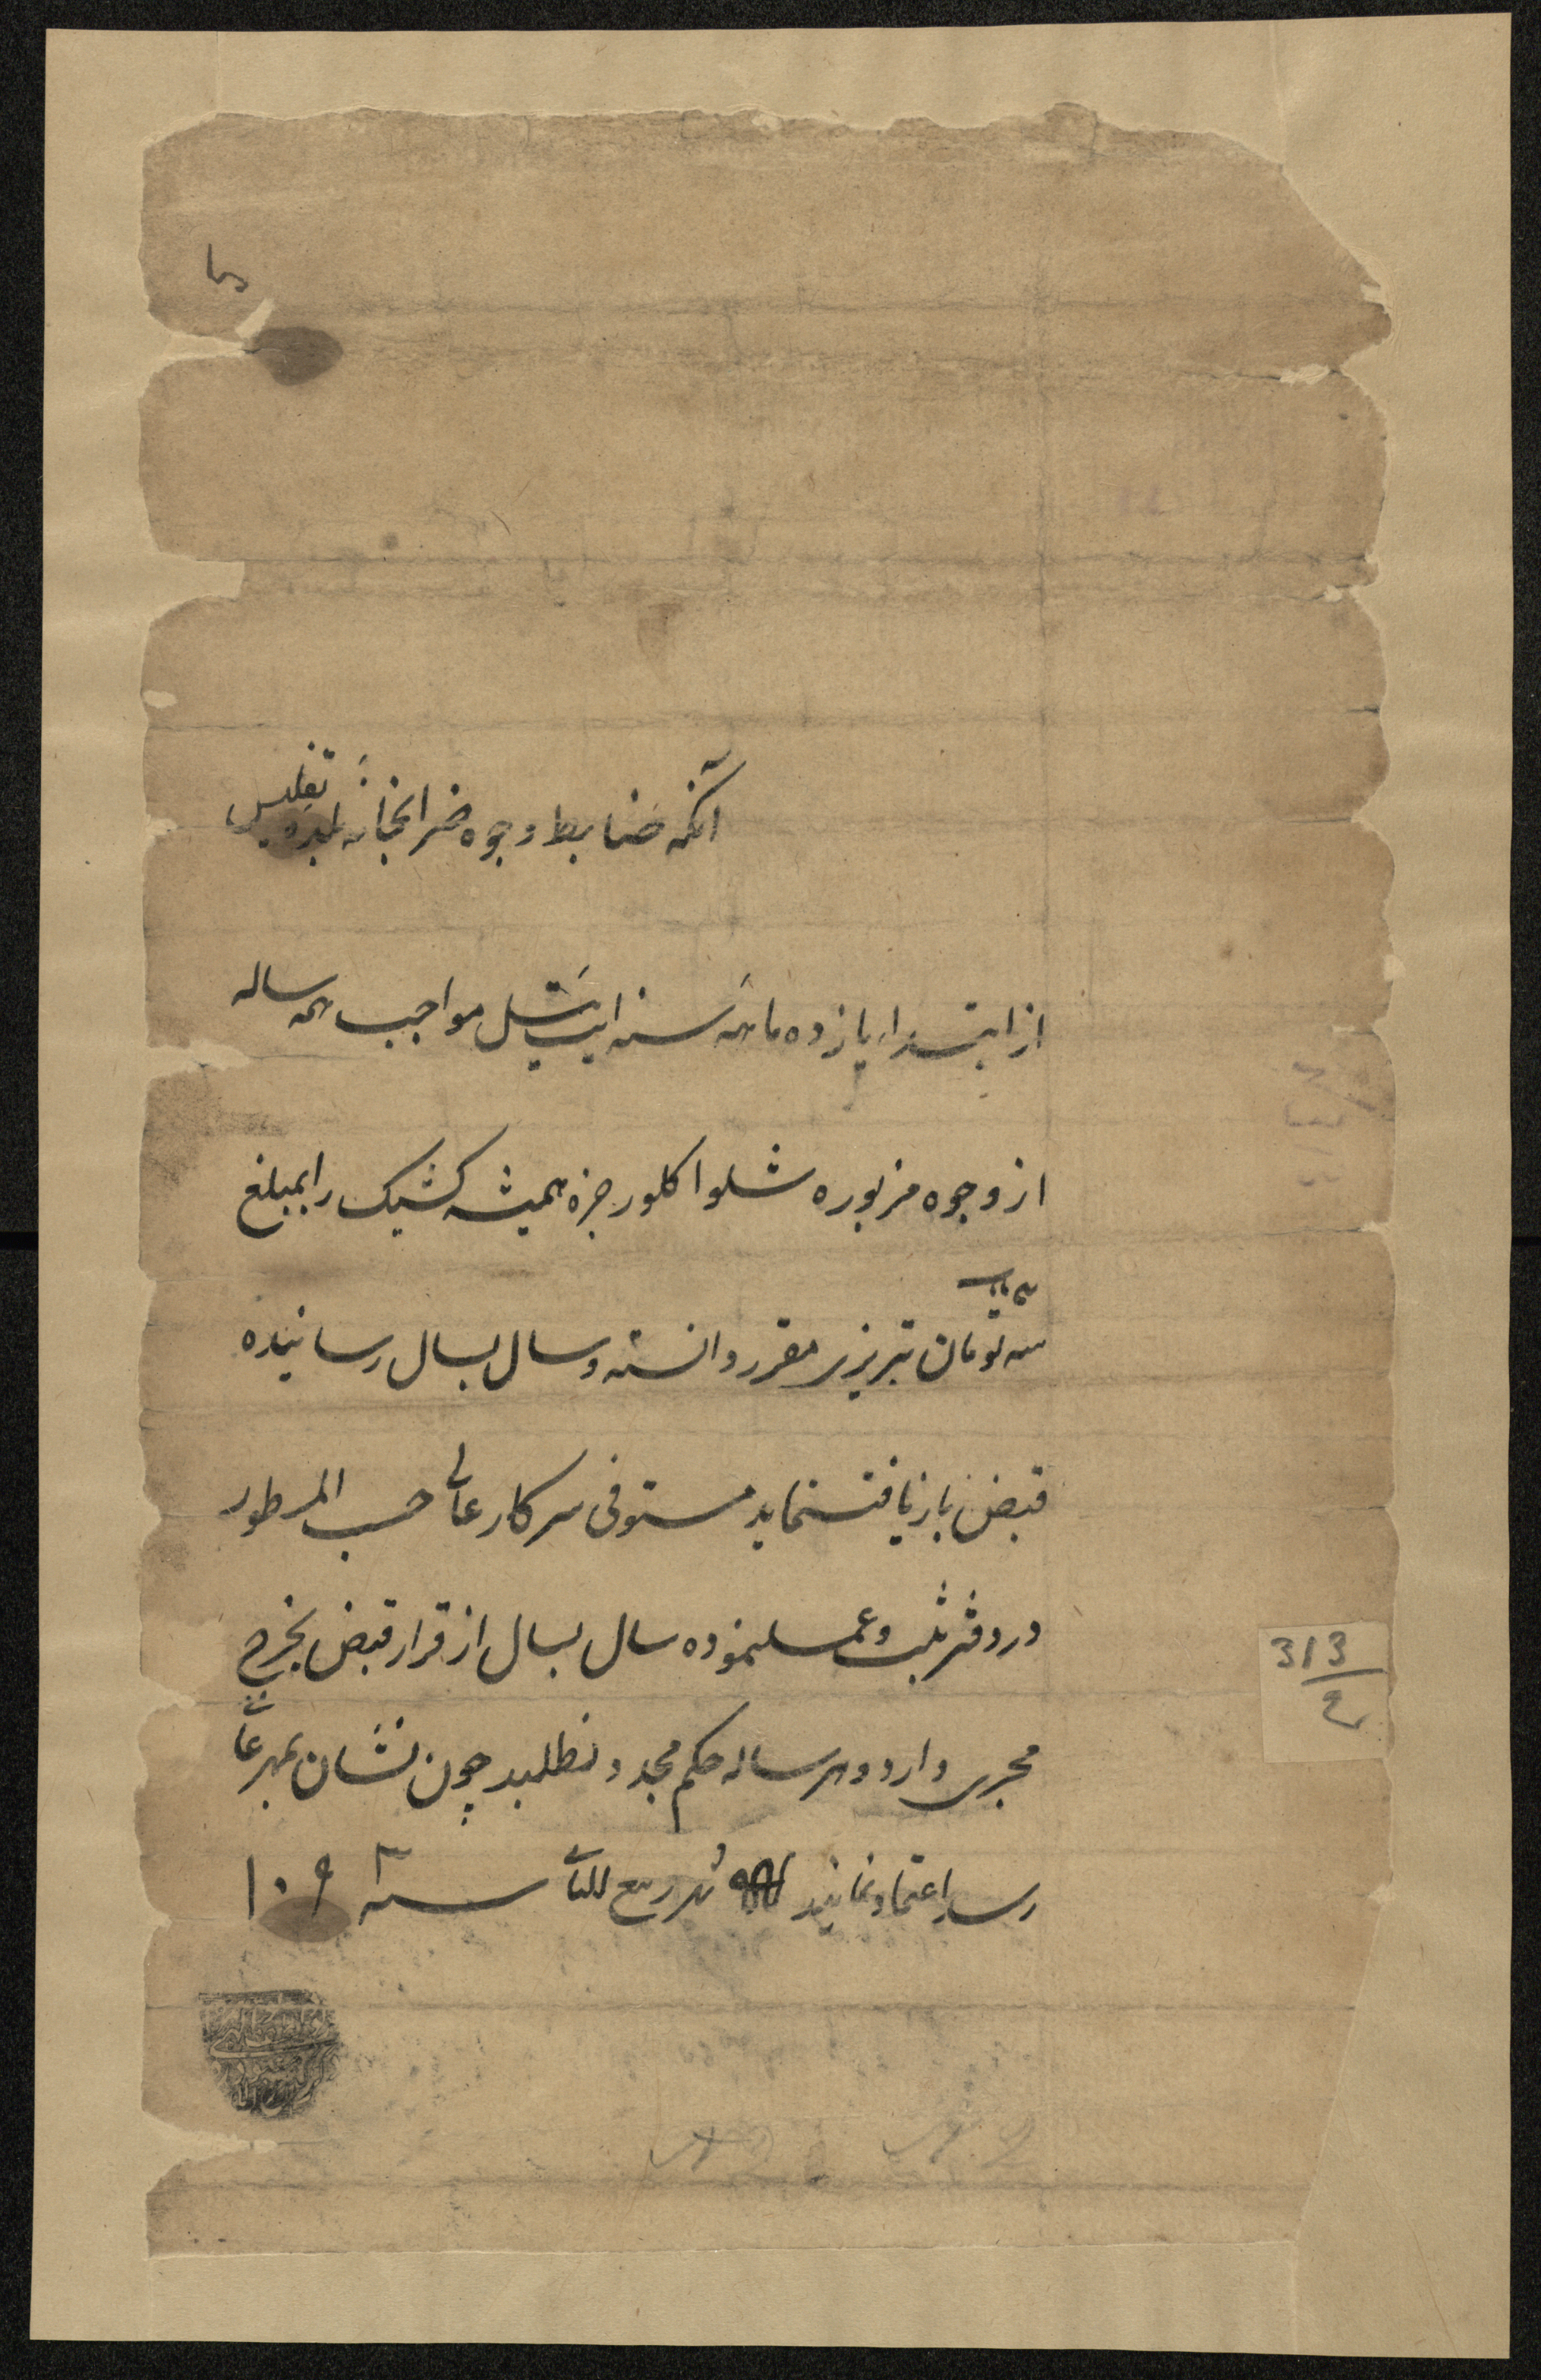 آنکه ضابط وجوه ضرابخانه بلده تفلیس
از ابتداء یازده ماهه سنه ایت ئیل مواجب همه ساله
از وجوه مزبوره شلوا کلورجزه همیشه کشیک را بمبلغ
سه تومان تبریزی مقرر دانسته و سال بسال رسانیده
قبض بازیافت نماید مستوفی سرکار عالی حسب المسطور
در دفتر ثبت و عمل نموده سال بسال از قرار قبض بخرج
مجری دارد و هر ساله حکم مجدد نطلبد چون نشان بمهر عالی
رسد اعتماد نمایند تحریراً فی شهر ربیع الثانی سنه ۱۰۹۳
313